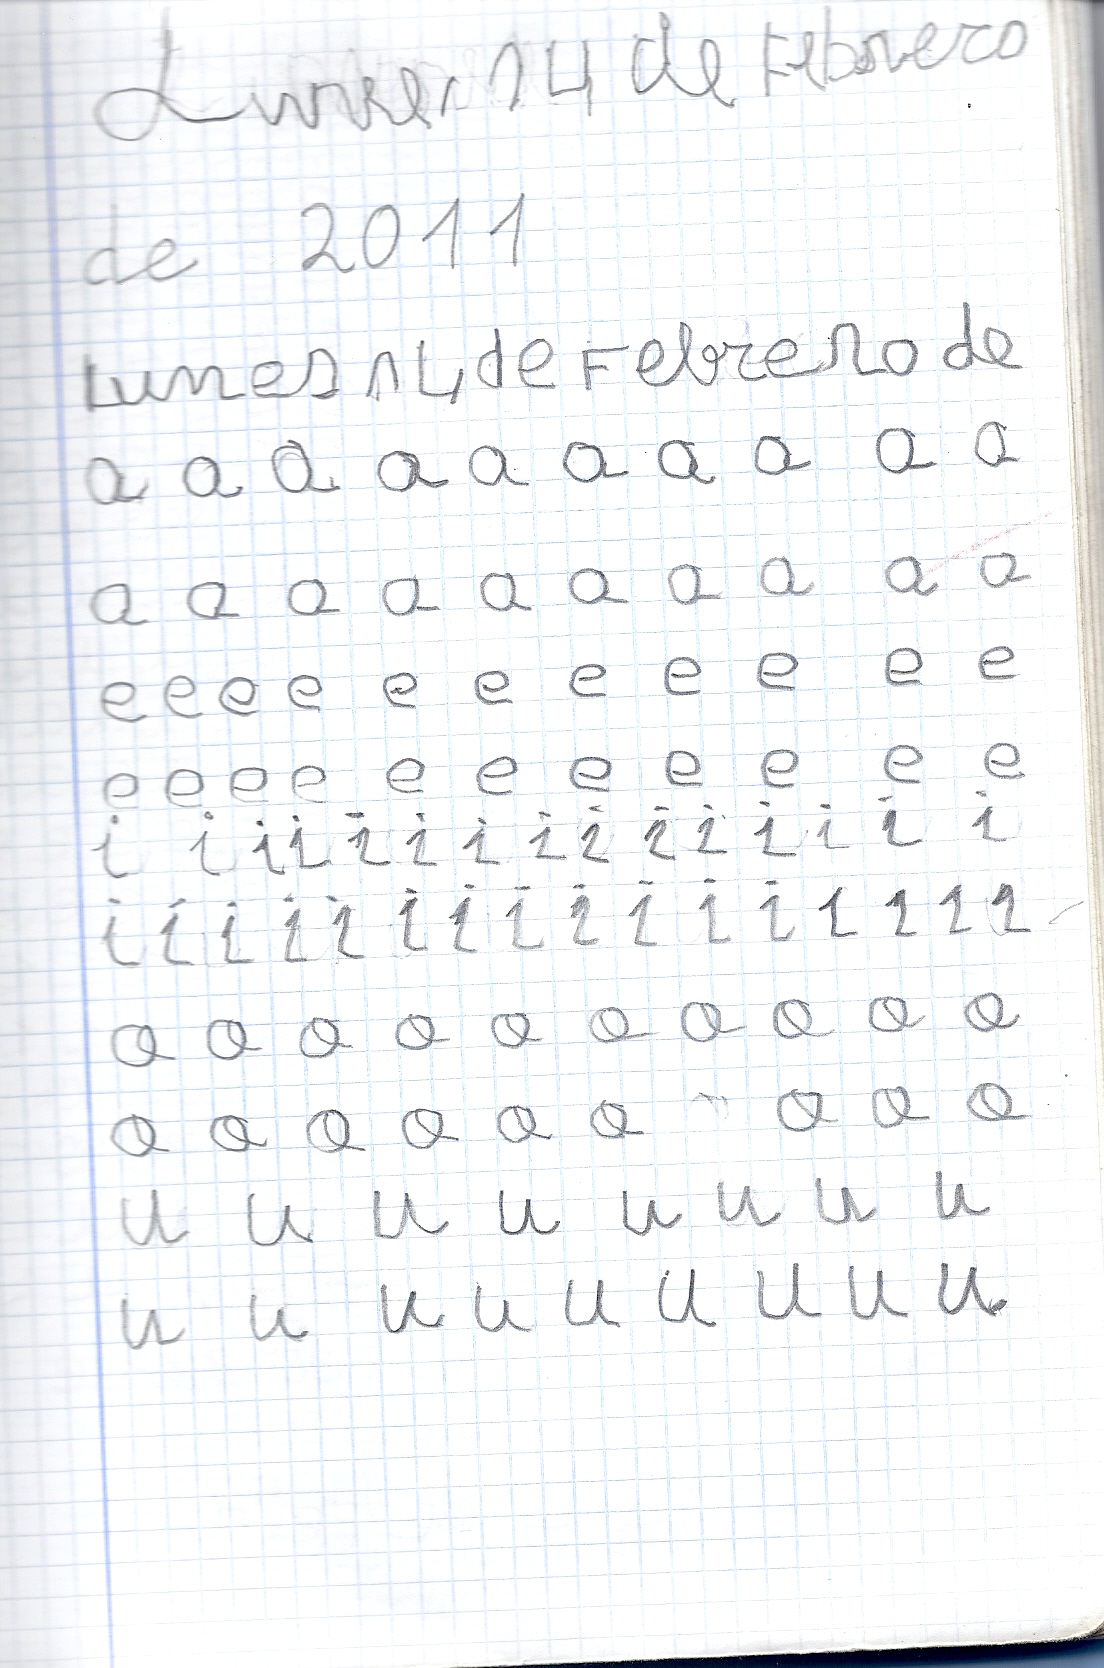 Lunes 14 de Febrero
de 2011
Lunes 14 de Febrero de
a a a a a a a a a a
a a a a a a a a a a
e e e e e e e e e e e
e e e e e e e e e e e
i i i i i i i i i i i i i i i
i i i i i i i i i i i i i i i i
o o o o o o o o o o
o o o o o o o o o
u u u u u u u u
u u u u u u u u u.